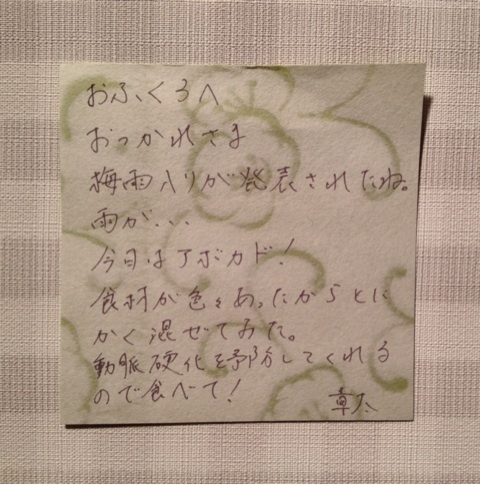 おふくろへ
おつかれさま
梅雨入りが発表されたね。
雨が...
今日はアボカド!
食材が色々あったからとに
かく混ぜてみた。
動脈硬化を予防してくれる
ので食べて!
章太